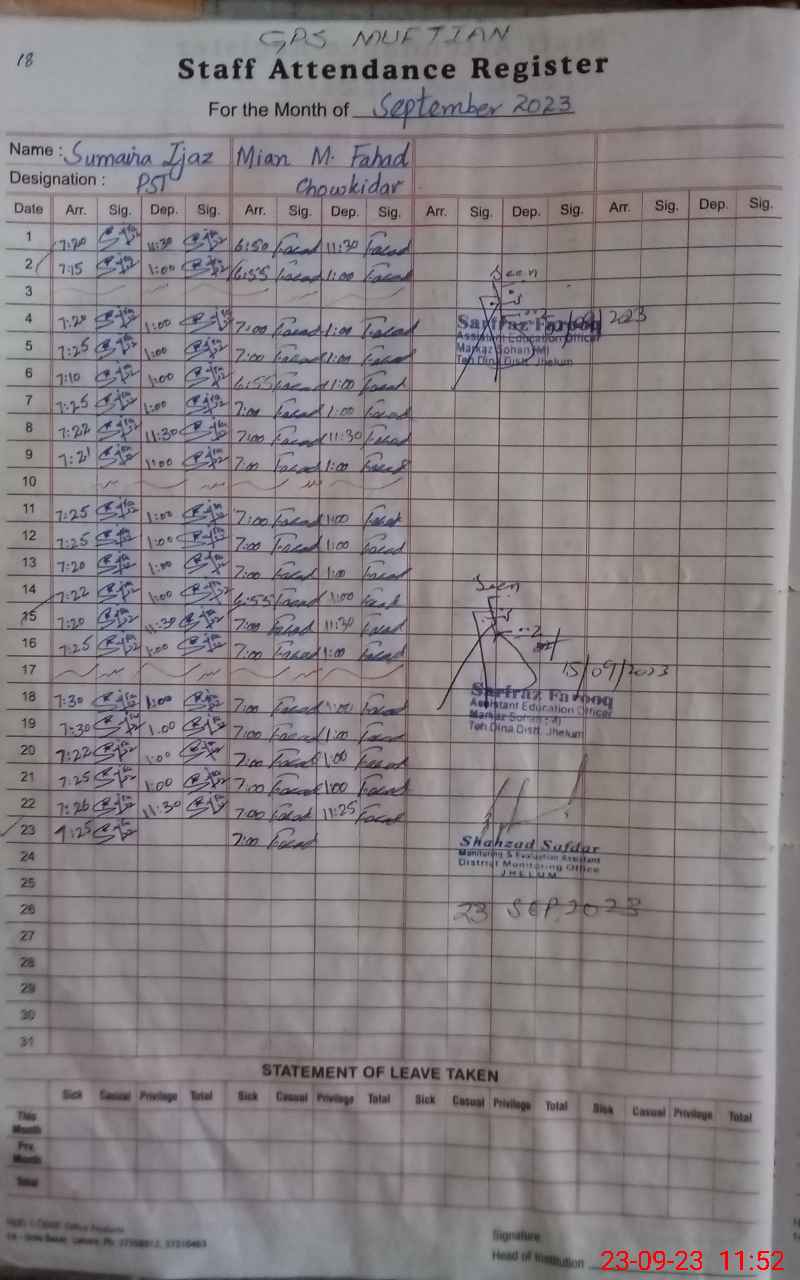 GPS MUFTIAN
18
Staff Attendance Register
For the Month of September 2023
Name : Sumaira Ijaz Mian M. Fahad
Designation : PST Chowkidar
Date Arr. Sig. Dep. Sig. Arr. Sig. Dep. Sig. Arr. Sig. Dep. Sig. Arr. Sig. Dep. Sig.
1 7:20 11:30 6:50 Fahad 11:30 Fahad
2 7:15 1:00 6:55 Fahad 1:00 Fahad
Seen
3
4 7:20 1:00 7:00 Fahad 1:00 Fahad
2023
Sarfraz Farooq
Assistant Education Officer
Markaz Sohan (M)
Teh Dina Distt. Jhelum
5 7:25 1:00 7:00 Fahad 1:00 Fahad
6 7:10 1:00 6:55 Fahad 1:00 Fahad
7 7:25 1:00 7:00 Fahad 1:00 Fahad
8 7:22 11:30 7:00 Fahad 11:30 Fahad
9 7:21 1:00 7:00 Fahad 1:00 Fahad
10
11 7:25 1:00 7:00 Fahad 1:00 Fahad
12 7:25 1:00 7:00 Fahad 1:00 Fahad
13 7:20 1:00 7:00 Fahad 1:00 Fahad
14 7:22 1:00 6:55 Fahad 1:00 Fahad
Seen
15 7:20 11:30 7:00 Fahad 11:30 Fahad
16 7:25 1:00 7:00 Fahad 1:00 Fahad
15/09/2023
17
18 7:30 1:00 7:00 Fahad 1:00 Fahad
Sarfraz Farooq
Assistant Education Officer
Markaz Sohan (M)
Teh Dina Distt. Jhelum
19 7:30 1:00 7:00 Fahad 1:00 Fahad
20 7:22 1:00 7:00 Fahad 1:00 Fahad
21 7:25 1:00 7:00 Fahad 1:00 Fahad
22 7:26 11:30 7:00 Fahad 11:25 Fahad
23 7:25 7:00 Fahad
Shahzad Safdar
Monitoring & Evaluation Assistant
District Monitoring Office
JHELUM
24
25
26
23 SEP 2023
27
28
29
30
31
STATEMENT OF LEAVE TAKEN
Sick Casual Privilege Total Sick Casual Privilege Total Sick Casual Privilege Total Sick Casual Privilege Total
This Month
Prv. Month
Total
Signature
Head of Institution
23-09-23 11:52